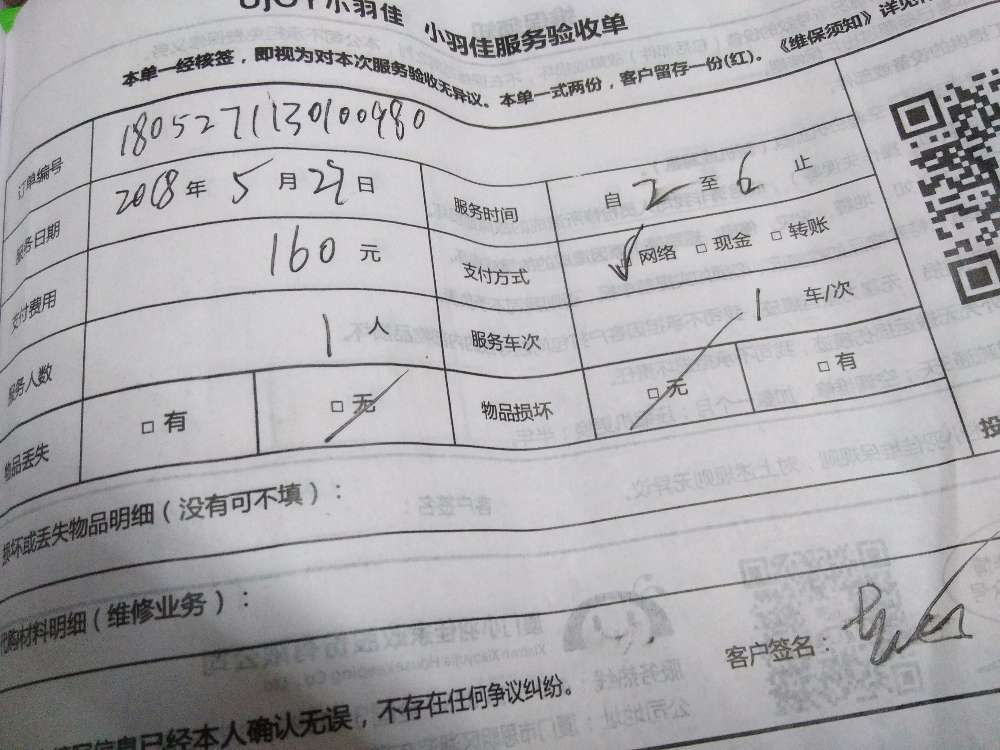 UJOY小羽佳 小羽佳服务验收单
本单一经核签，即视为对本次服务验收无异议。本单一式两份，客户留存一份(红)。《维保须知》详见
订单编号 1805271130100980
服务日期 2018年5月29日 服务时间 自2至6止
支付费用 160元 支付方式 □网络 □现金 □转账
服务人数 1人 服务车次 1车/次
物品丢失 □有 □无 物品损坏 □无 □有
损坏或丢失物品明细（没有可不填）：
代购材料明细（维修业务）：
客户签名：
信息已经本人确认无误，不存在任何争议纠纷。